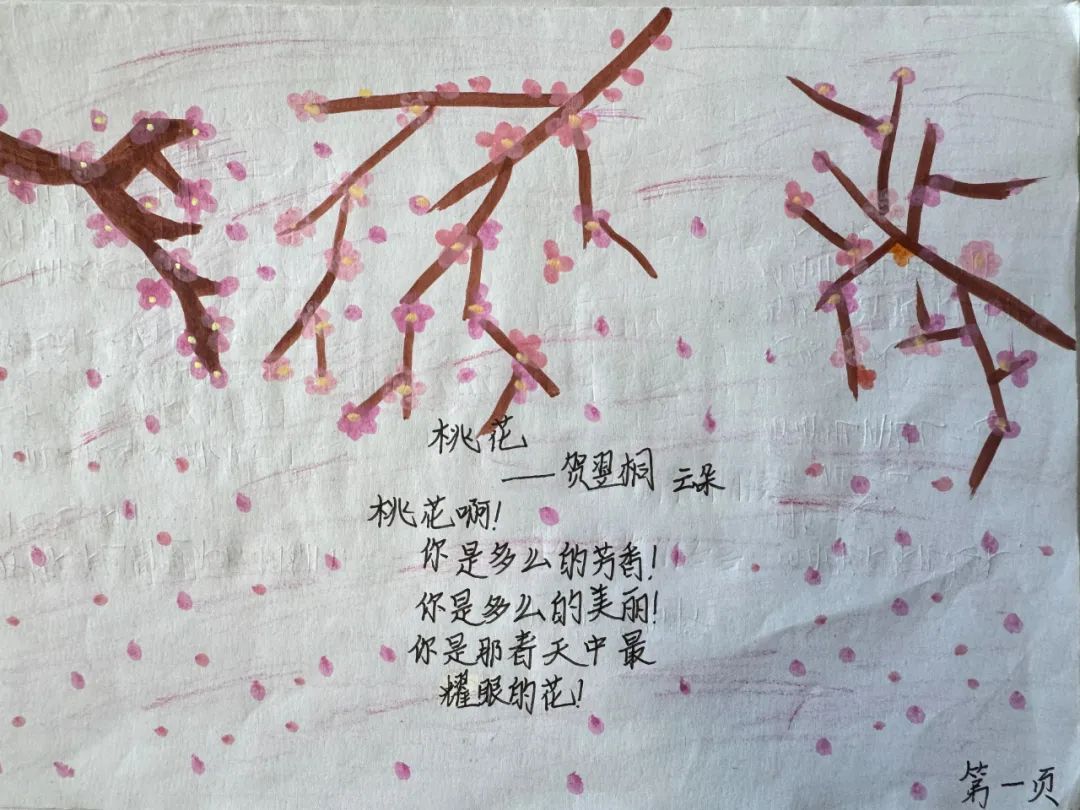 桃花
——贺翌桐 云朵
桃花啊!
你是多么的芳香!
你是多么的美丽!
你是那春天中最
耀眼的花!
第一页